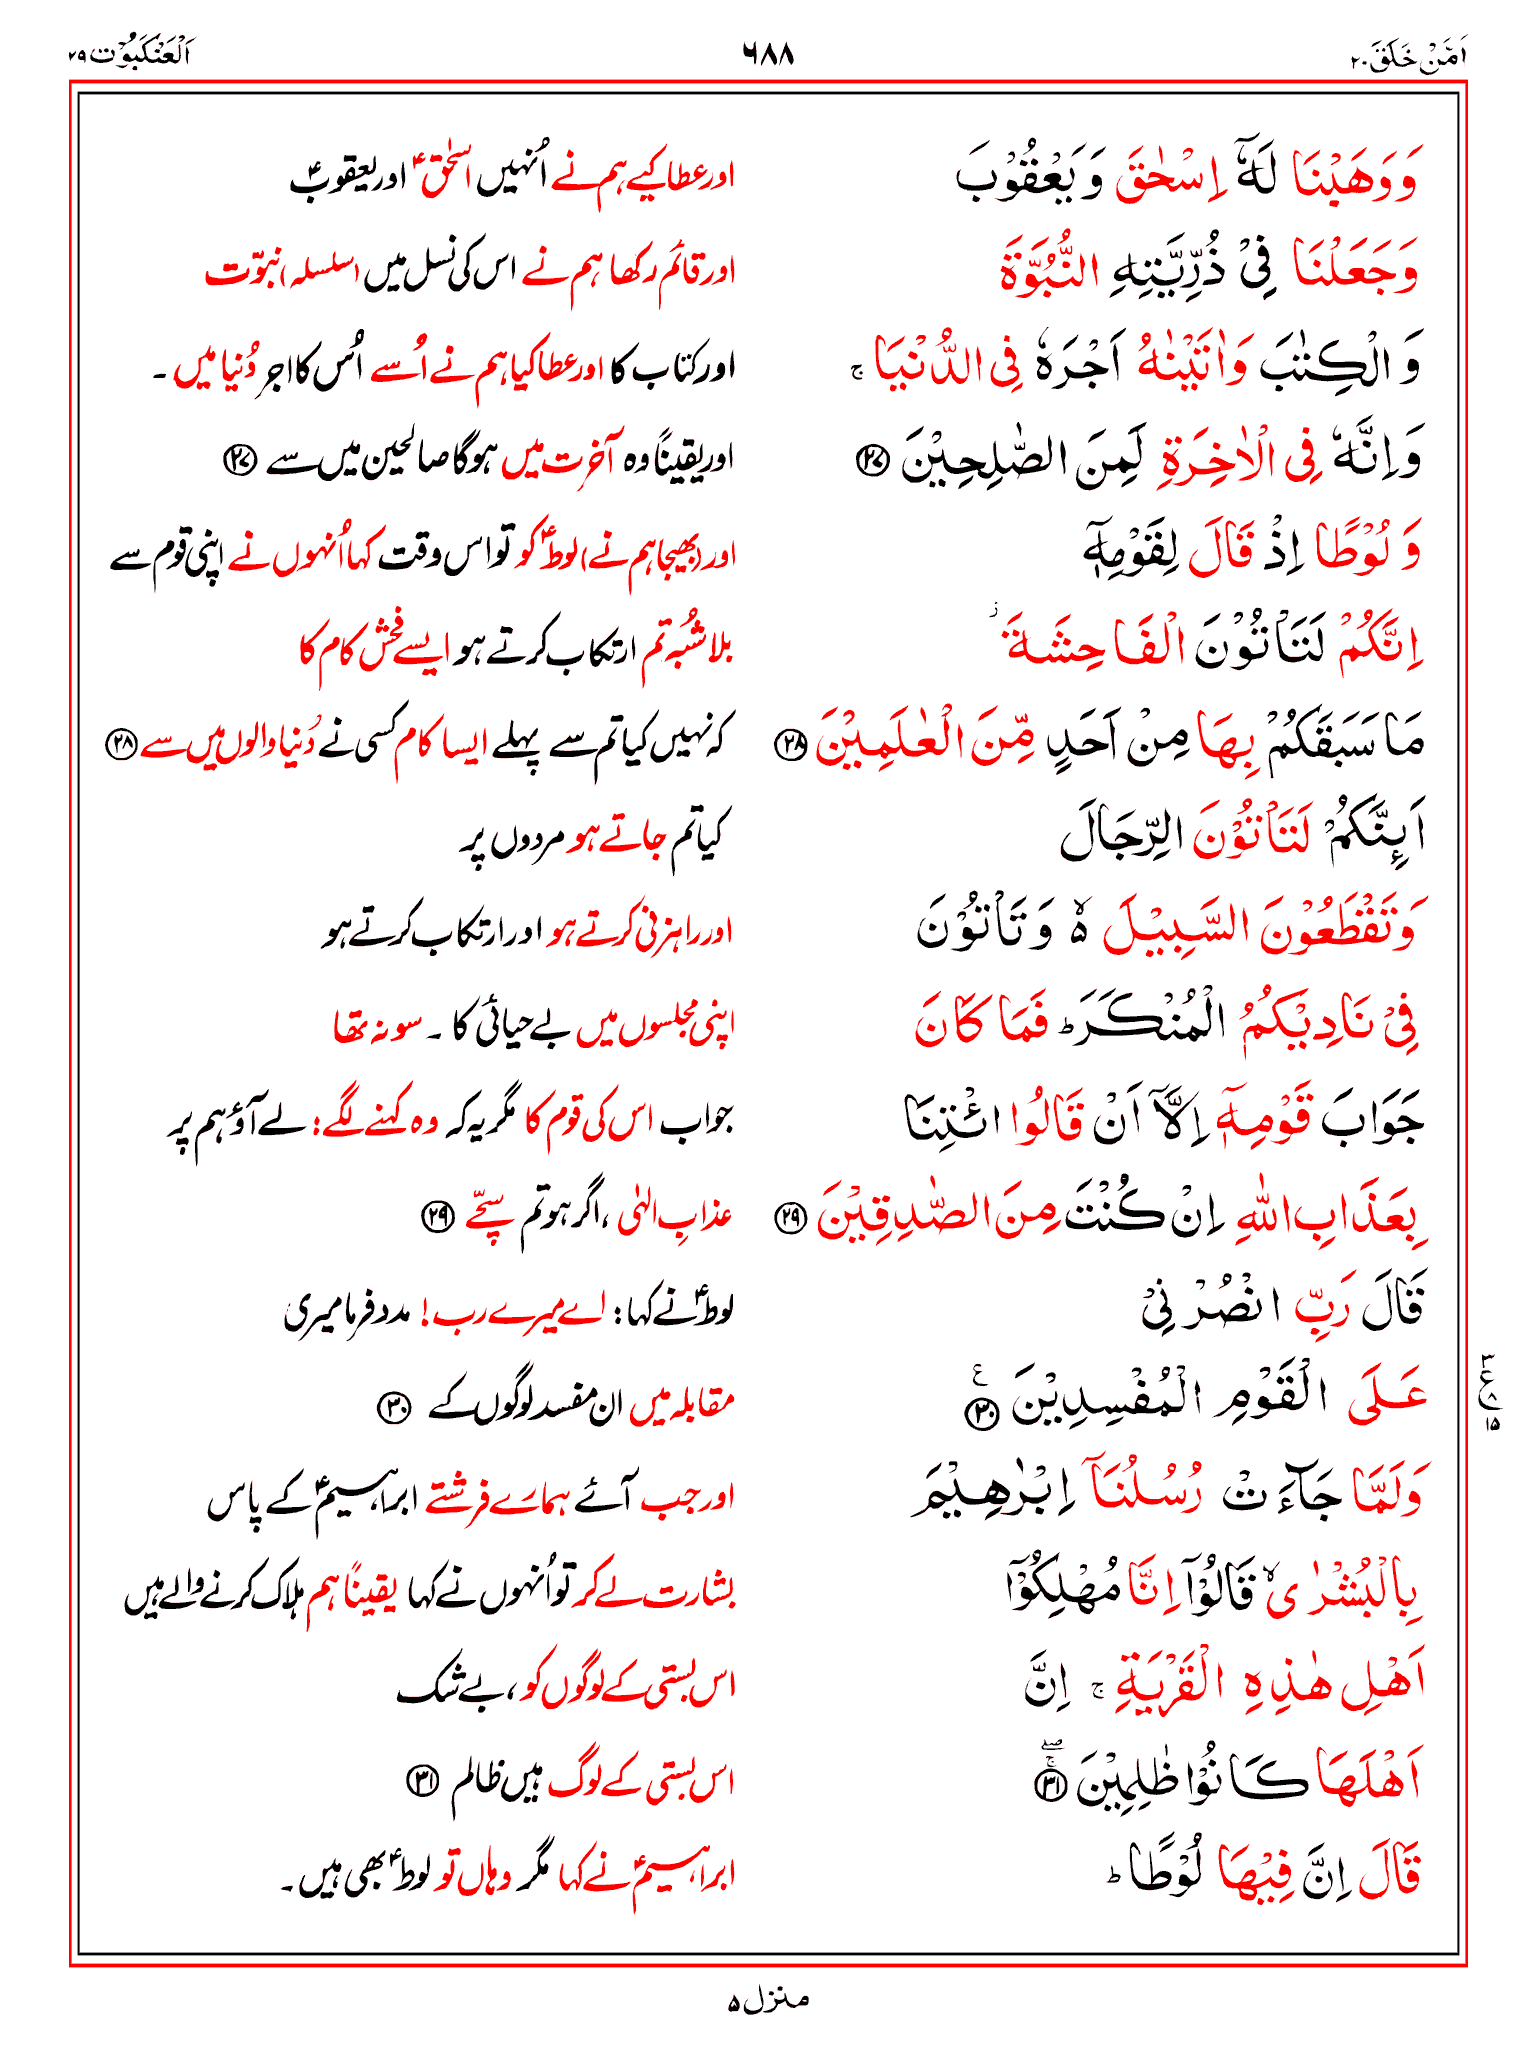 اَمَّنْ خَلَقَ ۲۰ ۶۸۸ اَلْعَنْكَبُوْت ۲۹
وَوَهَبْنَا لَهٗۤ اِسْحٰقَ وَيَعْقُوْبَ اور عطا کیے ہم نے اُنہیں اسحٰقؑ اور یعقوبؑ
وَجَعَلْنَا فِیْ ذُرِّيَّتِهِ النُّبُوَّةَ اور قائم رکھا ہم نے اس کی نسل میں (سلسلہ) نبوّت
وَالْكِتٰبَ وَاٰتَيْنٰهُ اَجْرَهٗ فِی الدُّنْيَا ۚ اور کتاب کا اور عطا کیا ہم نے اُسے اُس کا اجر دُنیا میں ۔
وَاِنَّهٗ فِی الْاٰخِرَةِ لَمِنَ الصّٰلِحِيْنَ ﴿۲۷﴾ اور یقیناً وہ آخرت میں ہوگا صالحین میں سے ﴿۲۷﴾
وَلُوْطًا اِذْ قَالَ لِقَوْمِهٖۤ اور (بھیجا ہم نے) لوطؑ کو تو اس وقت کہا اُنہوں نے اپنی قوم سے
اِنَّكُمْ لَتَاْتُوْنَ الْفَاحِشَةَ ؗ بلا شُبہ تم ارتکاب کرتے ہو ایسے فحش کام کا
مَا سَبَقَكُمْ بِهَا مِنْ اَحَدٍ مِّنَ الْعٰلَمِيْنَ ﴿۲۸﴾ کہ نہیں کیا تم سے پہلے ایسا کام کسی نے دُنیا والوں میں سے ﴿۲۸﴾
اَئِنَّكُمْ لَتَاْتُوْنَ الرِّجَالَ کیا تم جاتے ہو مردوں پر
وَتَقْطَعُوْنَ السَّبِيْلَ ۙ۬ وَتَاْتُوْنَ اور راہزنی کرتے ہو اور ارتکاب کرتے ہو
فِیْ نَادِيْكُمُ الْمُنْكَرَ ؕ فَمَا كَانَ اپنی مجلسوں میں بے حیائی کا ۔ سو نہ تھا
جَوَابَ قَوْمِهٖۤ اِلَّاۤ اَنْ قَالُوا ائْتِنَا جواب اس کی قوم کا مگر یہ کہ وہ کہنے لگے: لے آؤ ہم پر
بِعَذَابِ اللّٰهِ اِنْ كُنْتَ مِنَ الصّٰدِقِيْنَ ﴿۲۹﴾ عذابِ الہٰی ، اگر ہو تم سچّے ﴿۲۹﴾
قَالَ رَبِّ انْصُرْنِیْ لوطؑ نے کہا: اے میرے رب! مدد فرما میری
عَلَی الْقَوْمِ الْمُفْسِدِيْنَ ﴿۳۰﴾ ع مقابلہ میں ان مفسد لوگوں کے ﴿۳۰﴾
۳ ع ۸ ۱۵
وَلَمَّا جَآءَتْ رُسُلُنَاۤ اِبْرٰهِيْمَ اور جب آئے ہمارے فرشتے ابراہیمؑ کے پاس
بِالْبُشْرٰی ۙ قَالُوْۤا اِنَّا مُهْلِكُوْۤا بشارت لے کر تو اُنہوں نے کہا یقیناً ہم ہلاک کرنے والے ہیں
اَهْلِ هٰذِهِ الْقَرْيَةِ ۚ اِنَّ اس بستی کے لوگوں کو ، بے شک
اَهْلَهَا كَانُوْا ظٰلِمِيْنَ ﴿۳۱﴾ ۚۖ اس بستی کے لوگ ہیں ظالم ﴿۳۱﴾
قَالَ اِنَّ فِيْهَا لُوْطًا ؕ ابراہیمؑ نے کہا مگر وہاں تو لوطؑ بھی ہیں ۔
منزل ۵